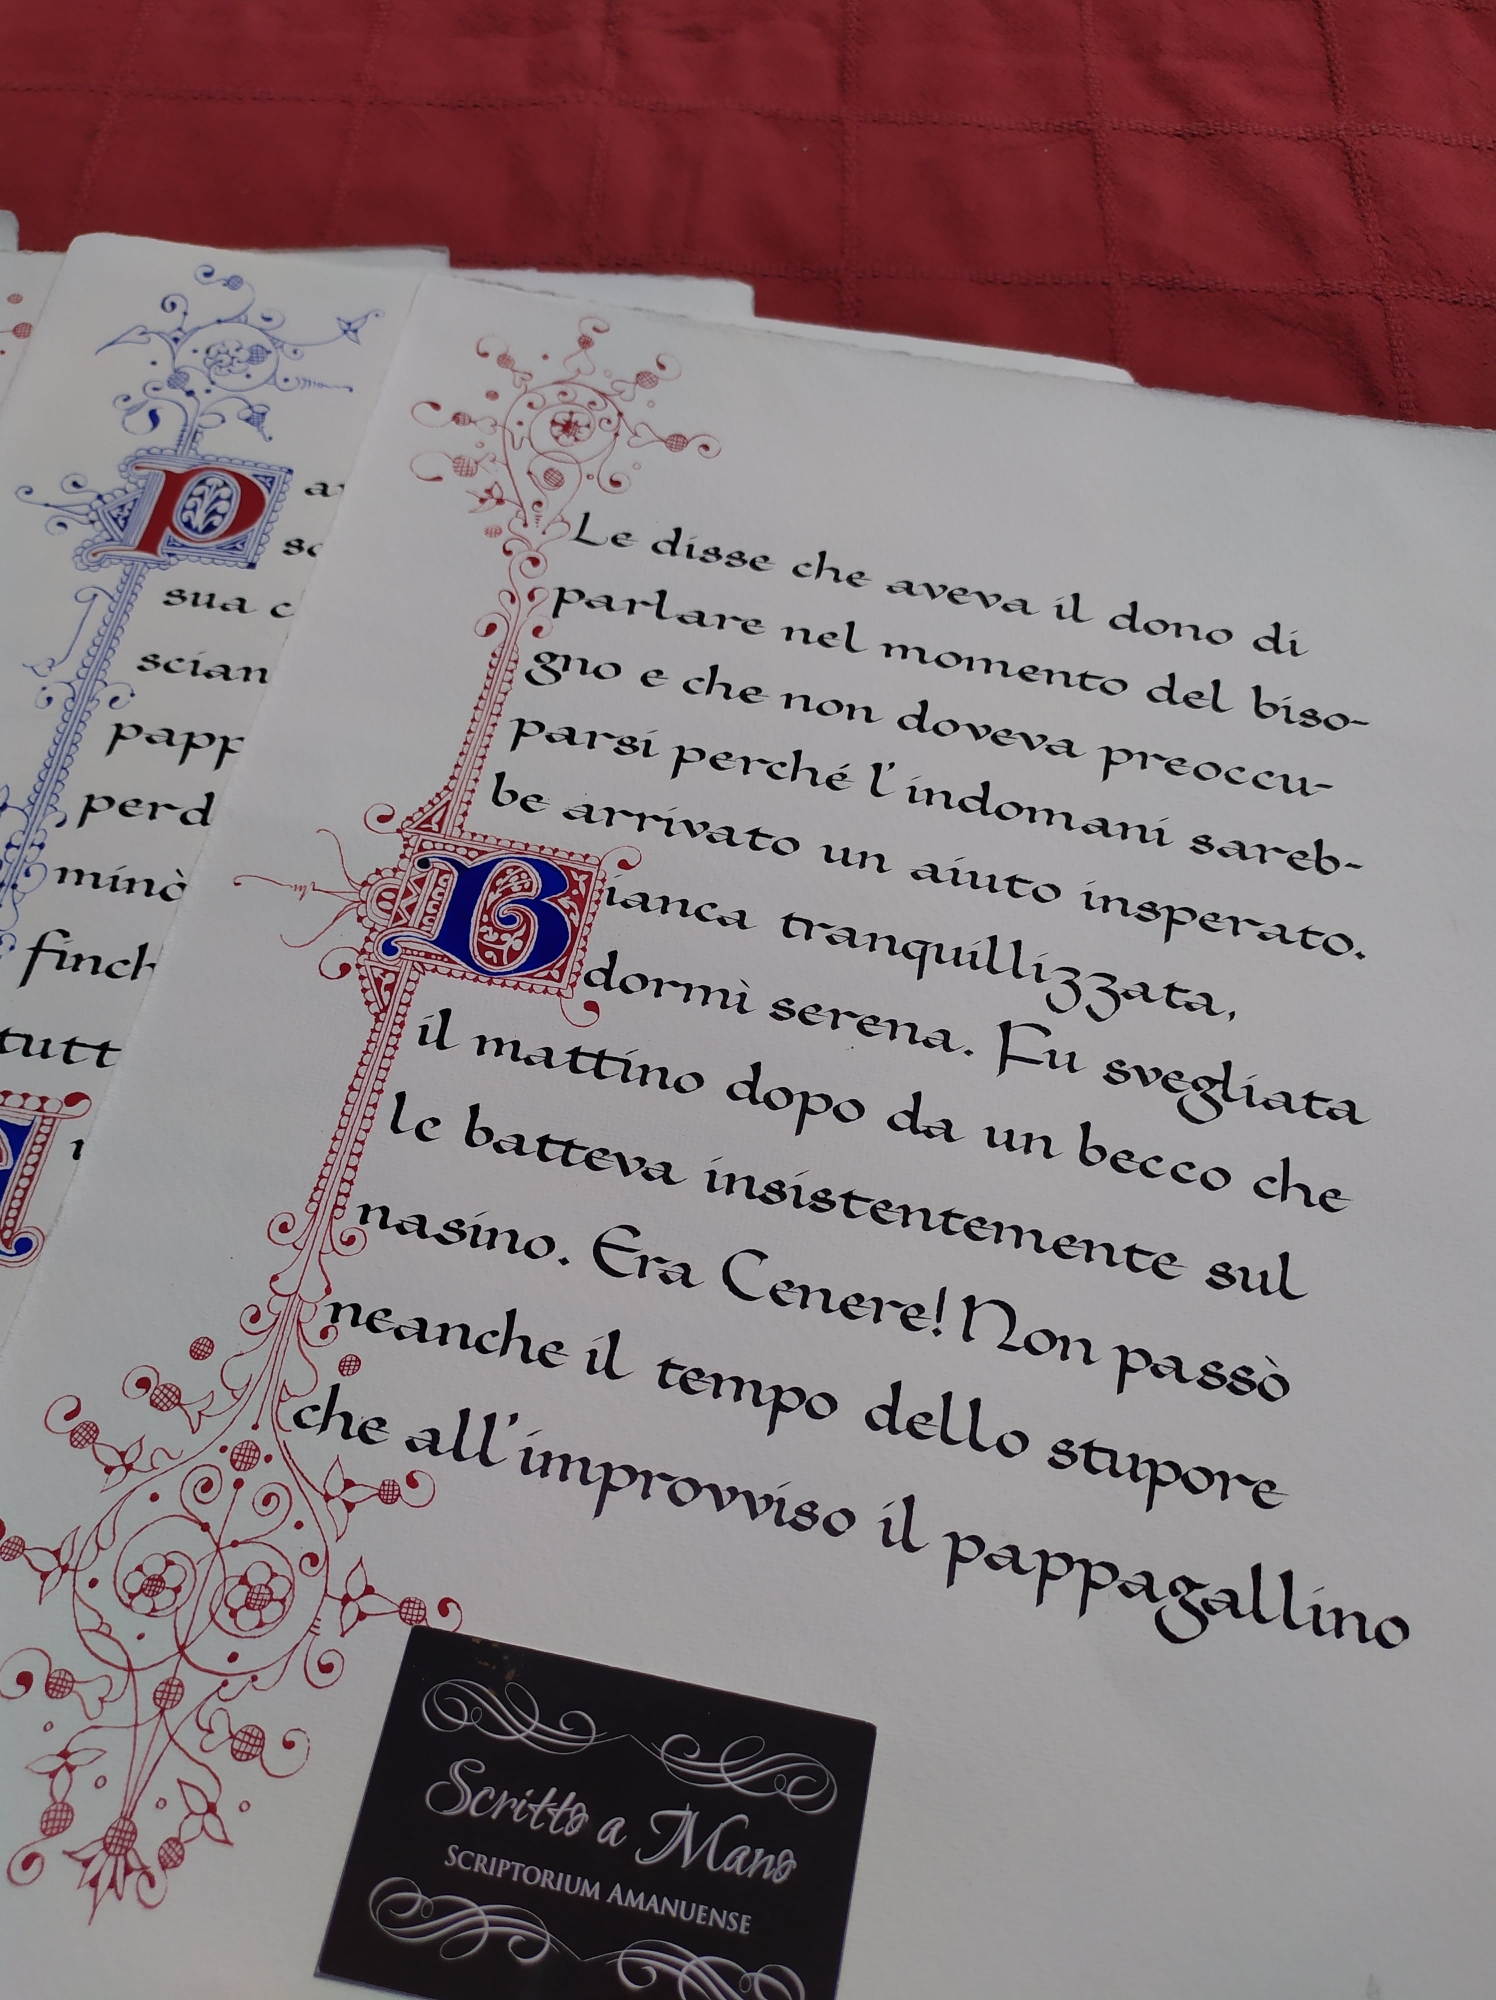 P
ar
sc
sua c
scian
papp
perd
minò
finch
tutt
Le disse che aveva il dono di
parlare nel momento del biso-
gno e che non doveva preoccu-
parsi perché l'indomani sareb-
be arrivato un aiuto insperato.
Bianca tranquillizzata,
dormì serena. Fu svegliata
il mattino dopo da un becco che
le batteva insistentemente sul
nasino. Era Cenere! Non passò
neanche il tempo dello stupore
che all'improvviso il pappagallino
Scritto a Mano
SCRIPTORIUM AMANUENSE